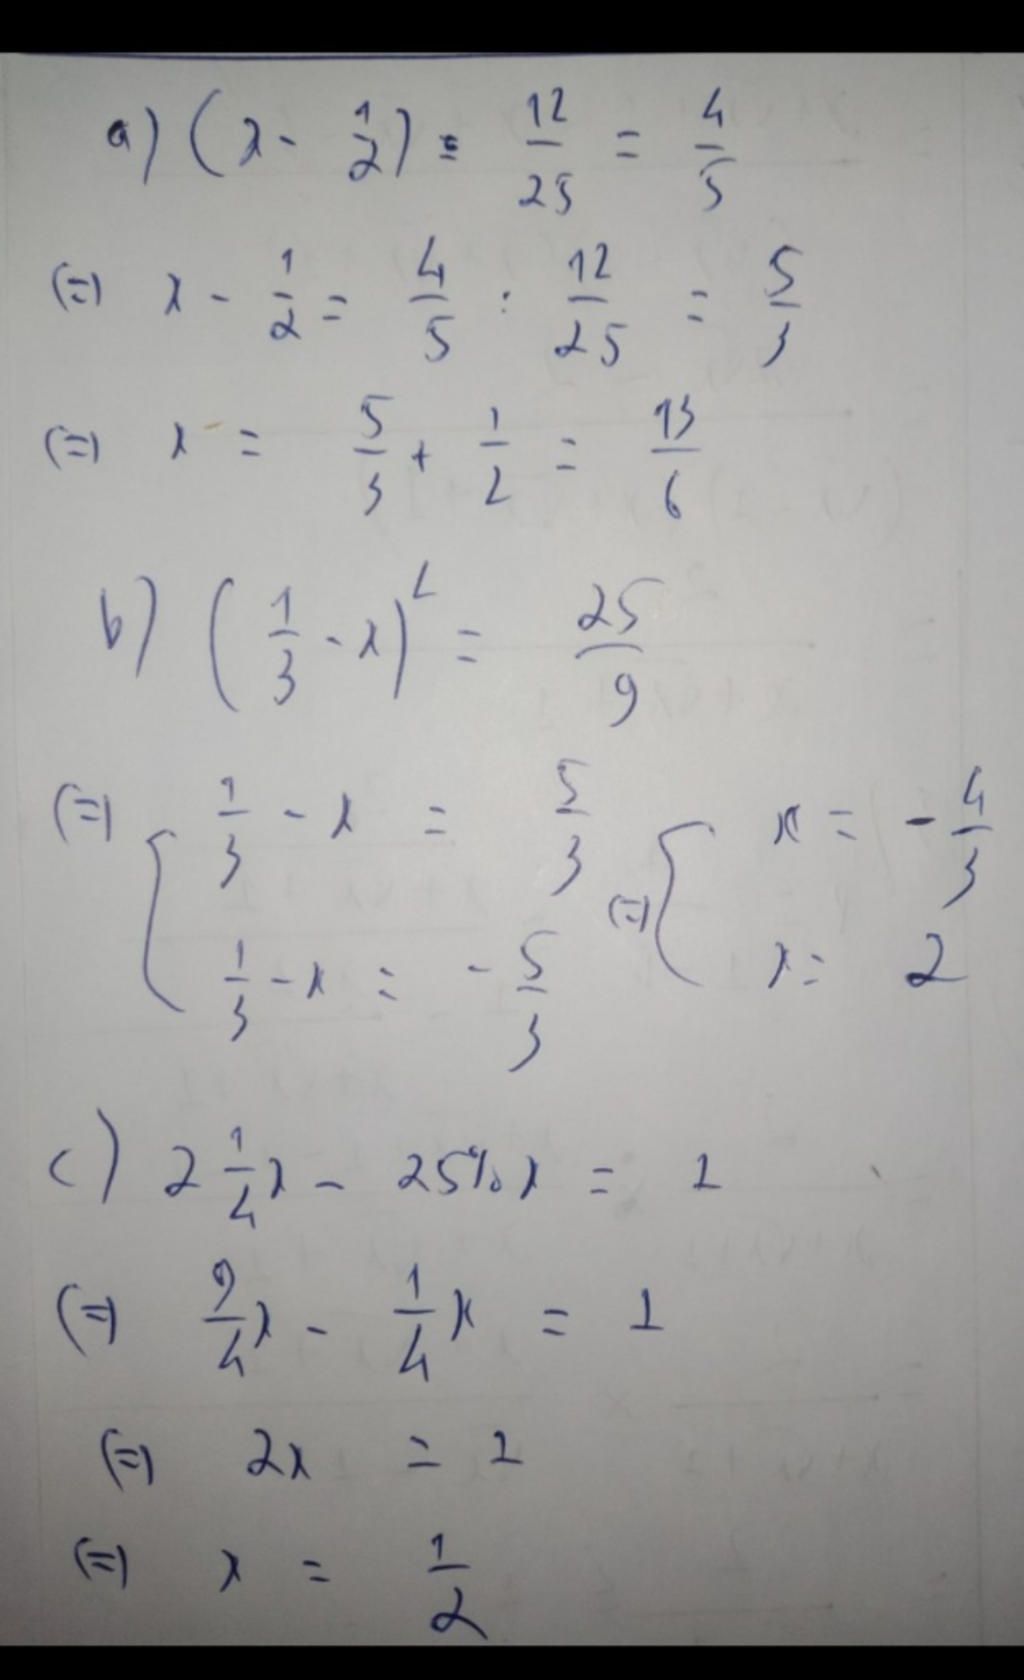 a) (x - 1/2) = 12/25 = 4/5
(=) x - 1/2 = 4/5 : 12/25 = 5/3
(=) x = 5/3 + 1/2 = 13/6
b) (1/3 - x)² = 25/9
(=) { 1/3 - x = 5/3 (=) { x = -4/3
1/3 - x = -5/3 x = 2
c) 2 1/4 x - 25% x = 1
(=) 9/4 x - 1/4 x = 1
(=) 2x = 1
(=) x = 1/2